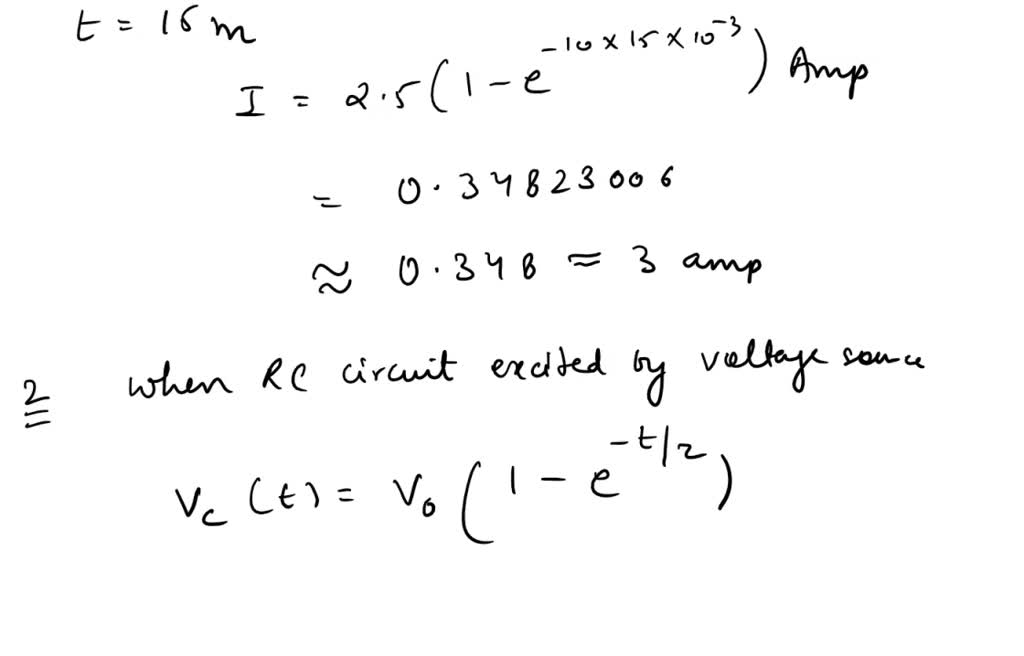 t = 15 m
I = 2.5(1-e^{-10×15×10^{-3}}) Amp
= 0.34823006
≈ 0.348 = 3 amp
2 when RC circuit excited by voltage source
V_c(t) = V_0(1-e^{-t/τ})